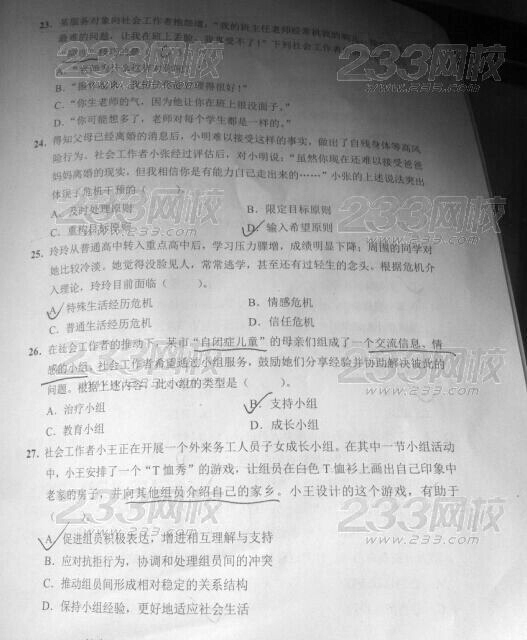 23. 某服务对象向社会工作者抱怨道，“我的班主任老师经常
最难的问题，让我在班上丢脸，我真受不了！”下列社会工作者
A.
B. 处理得很好！”
C. “你生老师的气，因为他让你在班上很没面子。”
D. “你可能想多了，老师对每个学生都是一样的。”
24. 得知父母已经离婚的消息后，小明难以接受这样的事实，做出了自残身体等高风
险行为。社会工作者小张经过评估后，对小明说：“虽然你现在还难以接受爸爸
妈妈离婚的现实，但我相信你是有能力自己走出来的……”小张的上述说法突出
体现了危机干预的（ ）。
A. 及时处理原则 B. 限定目标原则
C. 重构目标原则 D. 输入希望原则
25. 玲玲从普通高中转入重点高中后，学习压力骤增，成绩明显下降；周围的同学对
她比较冷淡。她觉得没脸见人，常常逃学，甚至还有过轻生的念头。根据危机介
入理论，玲玲目前面临（ ）。
A. 特殊生活经历危机 B. 情感危机
C. 普通生活经历危机 D. 信任危机
26. 在社会工作者的推动下，某市“自闭症儿童”的母亲们组成了一个交流信息、情
感的小组。社会工作者希望通过小组服务，鼓励她们分享经验并协助解决彼此的
问题。根据上述内容，此小组的类型是（ ）。
A. 治疗小组 B. 支持小组
C. 教育小组 D. 成长小组
27. 社会工作者小王正在开展一个外来务工人员子女成长小组。在其中一节小组活动
中，小王安排了一个“T恤秀”的游戏，让组员在白色T恤衫上画出自己印象中
老家的房子，并向其他组员介绍自己的家乡。小王设计的这个游戏，有助于
（ ）
A. 促进组员积极表达，增进相互理解与支持
B. 应对抗拒行为，协调和处理组员间的冲突
C. 推动组员间形成相对稳定的关系结构
D. 保持小组经验，更好地适应社会生活
233网校
www.233.com